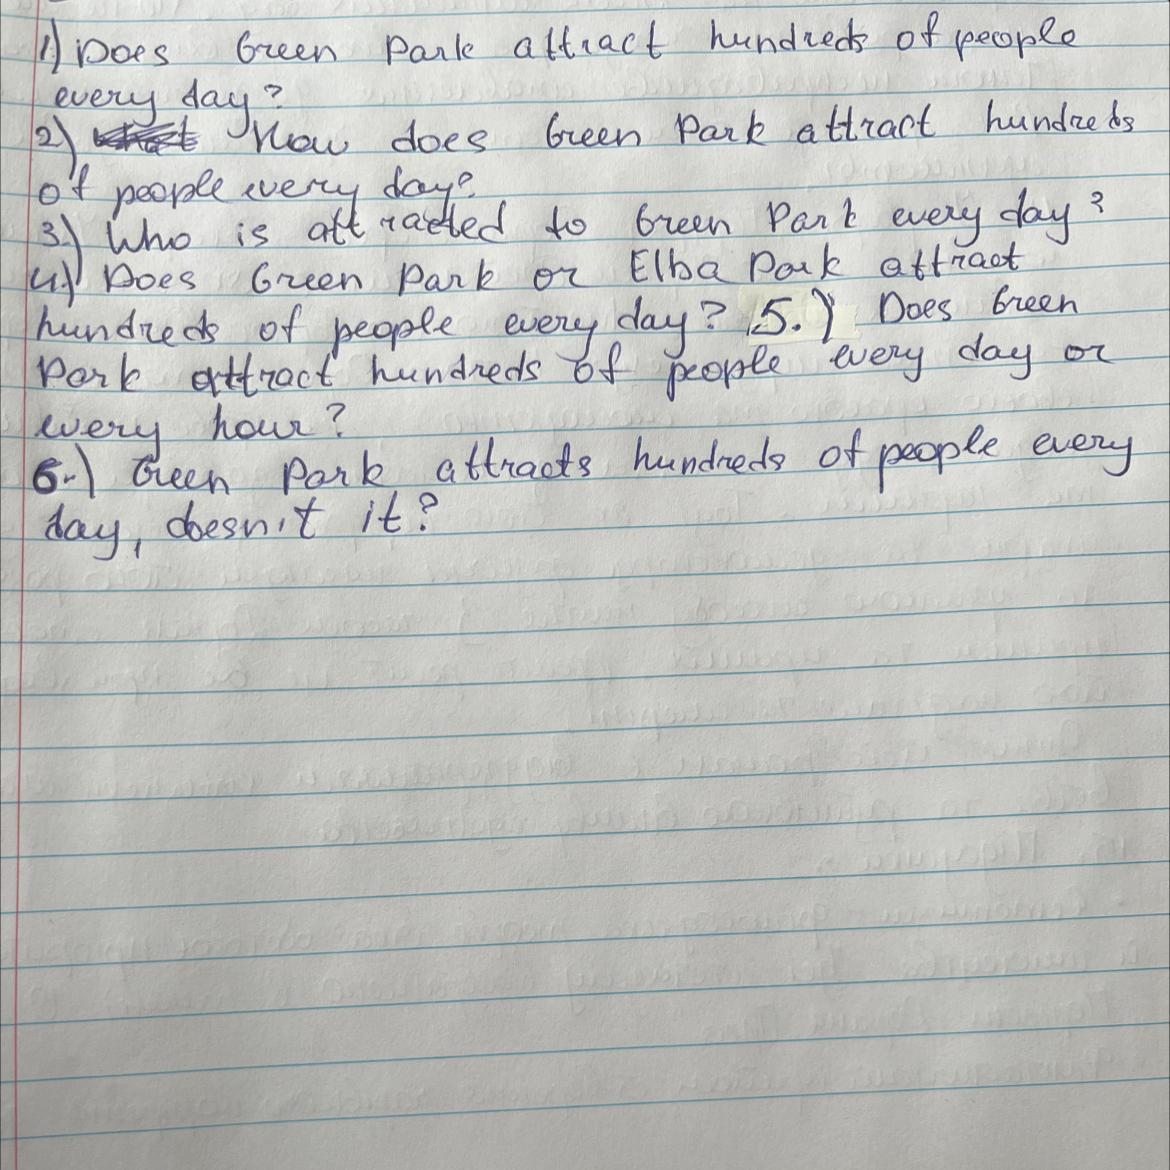 1) Does Green Park attract hundreds of people
every day?
2) How does Green Park attract hundreds
of people every day?
3.) Who is attracted to Green Park every day?
4.) Does Green Park or Elba Park attract
hundreds of people every day? 5.) Does Green
Park attract hundreds of people every day or
every hour?
6.) Green Park attracts hundreds of people every
day, doesn't it?